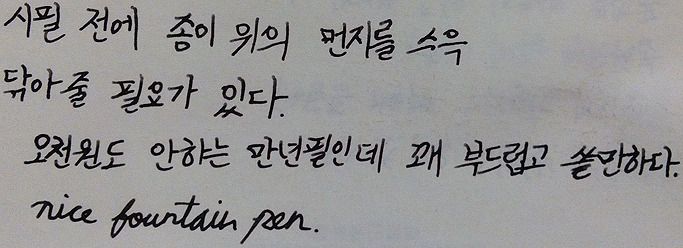 시필 전에 종이 위의 먼지를 스윽
닦아줄 필요가 있다.
오천원도 안하는 만년필인데 꽤 부드럽고 쓸만하다.
nice fountain pen.